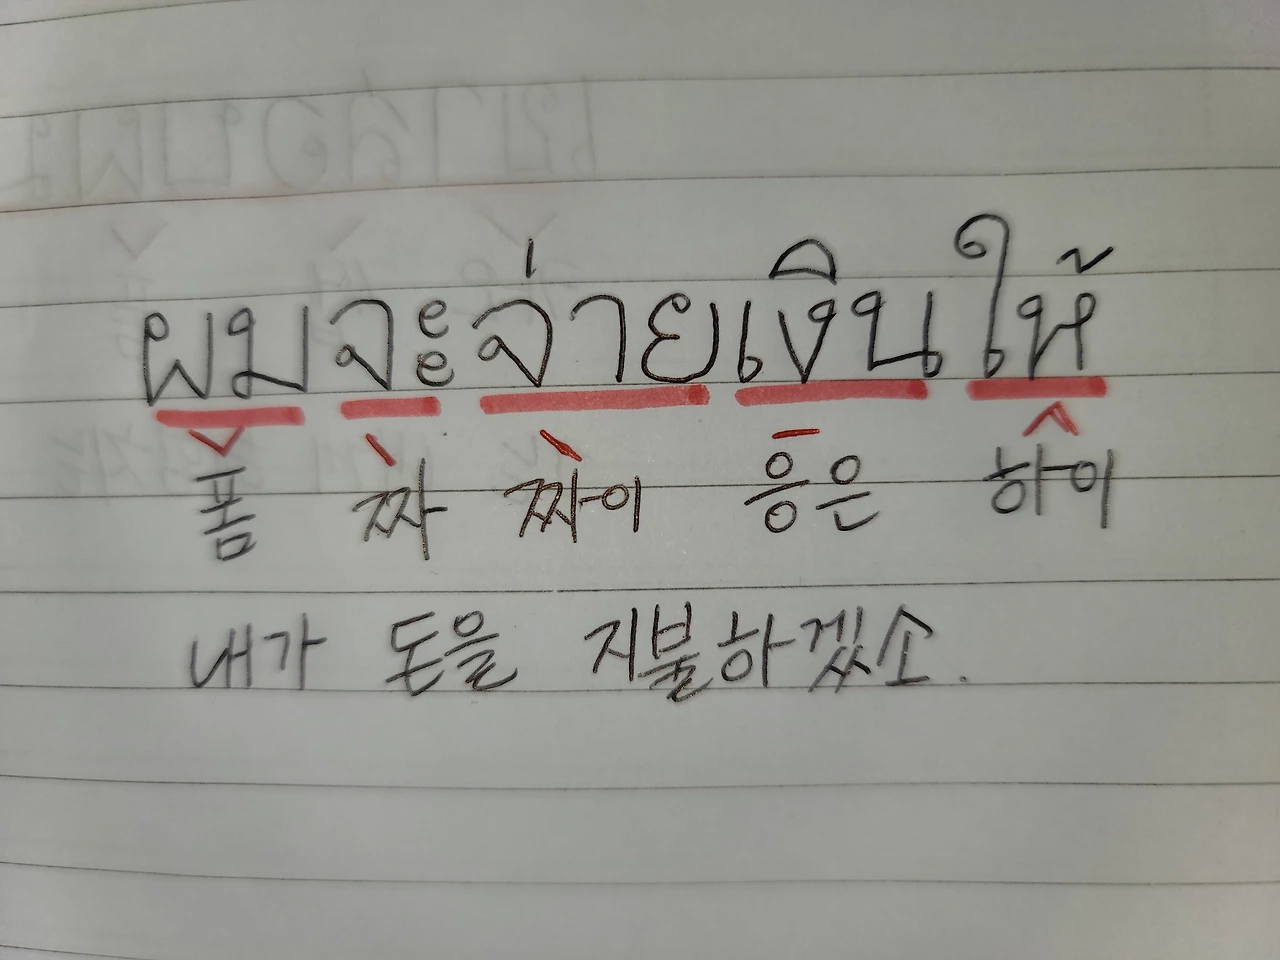 ผมจะจ่ายเงินให้
폼 짜 짜이 응은 하이
내가 돈을 지불하겠소.